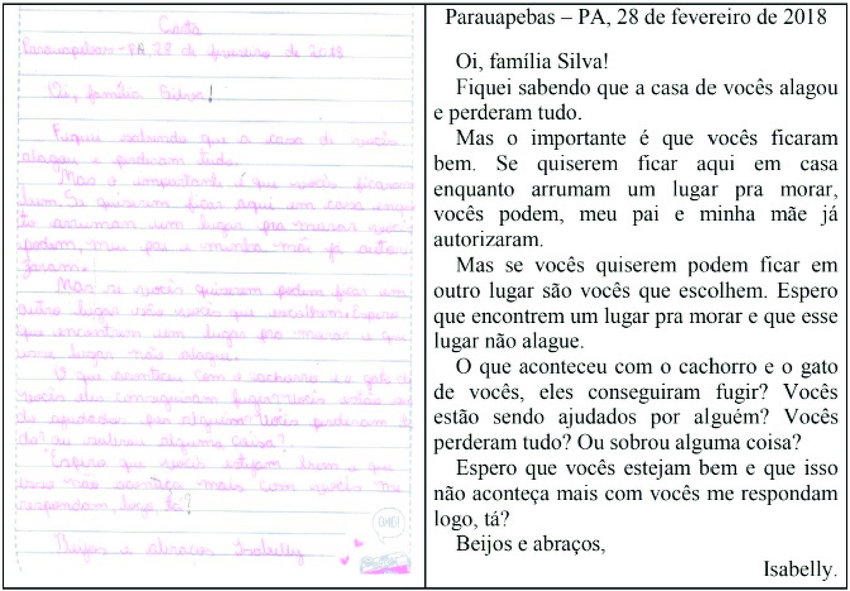 Carta
Parauapebas - PA, 28 de fevereiro de 2018
Oi, família Silva!
Fiquei sabendo que a casa de vocês
alagou e perderam tudo.
Mas o importante é que vocês ficaram
bem. Se quiserem ficar aqui em casa enqu
to arrumam um lugar pra morar voc
podem, meu pai e minha mãe já autori
zaram.
Mas se vocês quiserem podem ficar em
outro lugar são vocês que escolhem. Espero
que encontrem um lugar pra morar e que
esse lugar não alague.
O que aconteceu com o cachorro e o gato de
vocês eles conseguiram fugir? Vocês estão se
do ajudados por alguém? Vocês perderam t
do? ou sobrou alguma coisa?
Espero que vocês estejam bem e que
isso não aconteça mais com vocês me
respondam, logo, tá?
OMG!
Beijos e abraços Isabelly
Parauapebas – PA, 28 de fevereiro de 2018
Oi, família Silva!
Fiquei sabendo que a casa de vocês alagou
e perderam tudo.
Mas o importante é que vocês ficaram
bem. Se quiserem ficar aqui em casa
enquanto arrumam um lugar pra morar,
vocês podem, meu pai e minha mãe já
autorizaram.
Mas se vocês quiserem podem ficar em
outro lugar são vocês que escolhem. Espero
que encontrem um lugar pra morar e que esse
lugar não alague.
O que aconteceu com o cachorro e o gato
de vocês, eles conseguiram fugir? Vocês
estão sendo ajudados por alguém? Vocês
perderam tudo? Ou sobrou alguma coisa?
Espero que vocês estejam bem e que isso
não aconteça mais com vocês me respondam
logo, tá?
Beijos e abraços,
Isabelly.